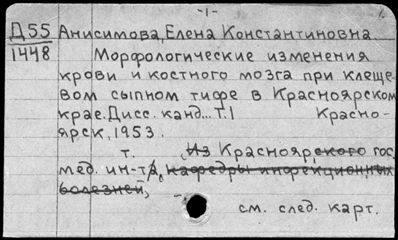 -1-
Д55 Анисимова, Елена Константиновна
1448 Морфологические изменения
крови и костного мозга при клеще-
вом сыпном тифе в Красноярском
крае. Дисс. канд... Т.1 Красно-
ярск, 1953.
т. Из Красноярского гос.
мед. ин-та, кафедры инфекционных
болезней,
см. след. карт.